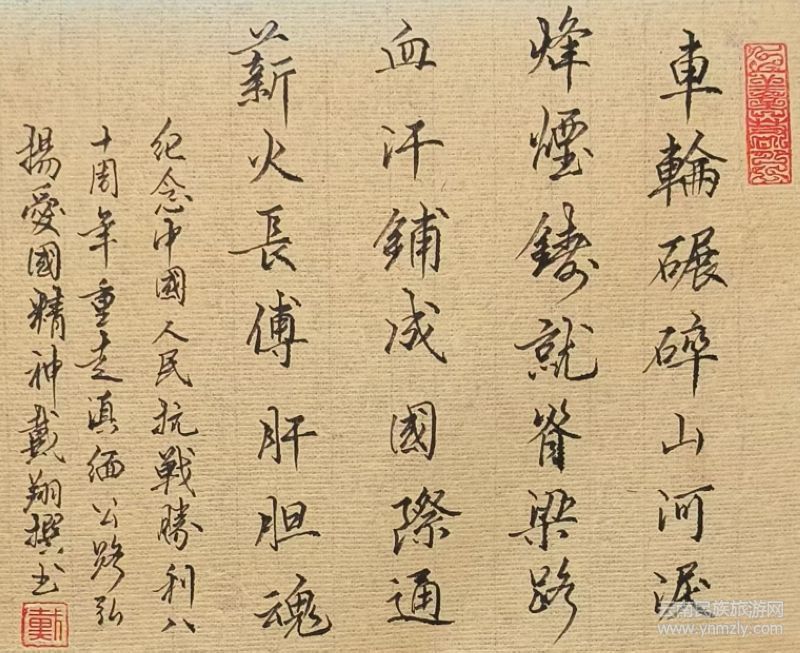 車輪碾碎山河淚
烽煙鑄就脊梁路
血汗鋪成國際通
薪火長傅肝胆魂
紀念中國人民抗戰勝利八
十周年重走滇緬公路弘
揚愛國精神戴翔撰书
云南民族旅游网
www.ynmzly.com